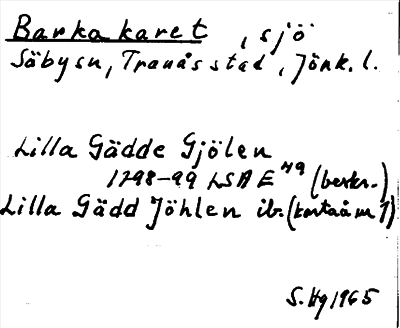 Barkakaret, sjö
Säbysn, Tranås stad, Jönk. l.
Lilla Gädde Gjölen
1798-99 LSA E 49 (beskr.)
Lilla Gädd Jöhlen ib. (kartaå nr 1)
S. Hg 1965